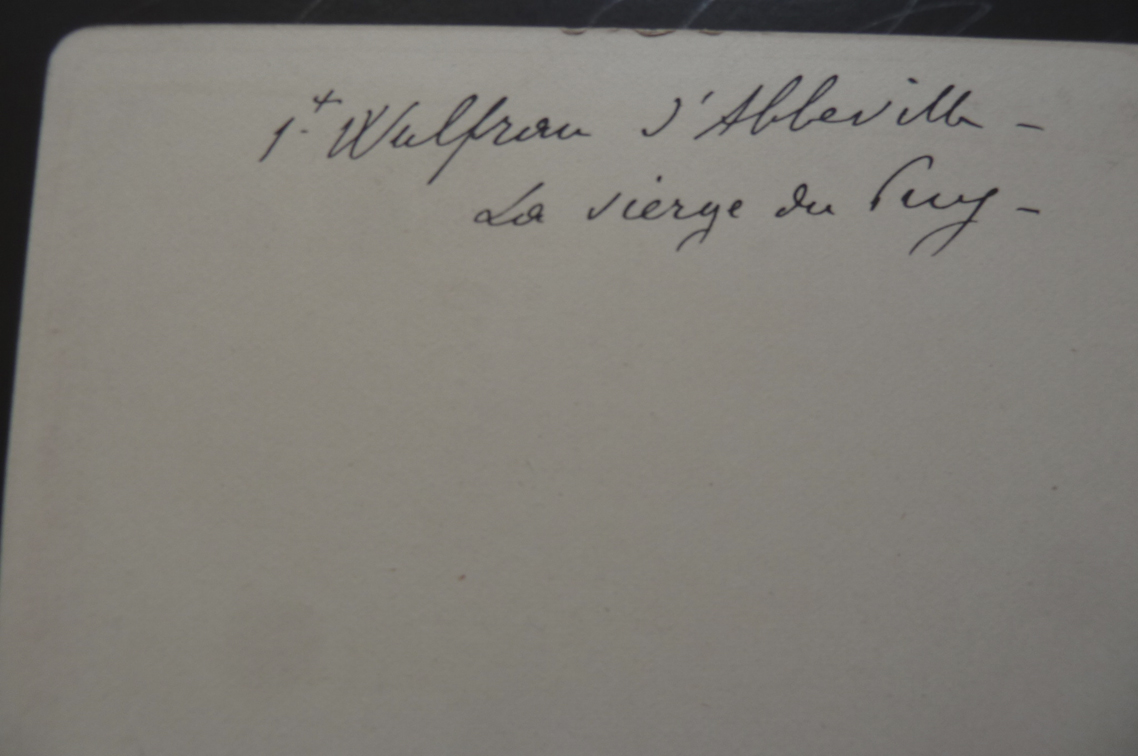 St Wulfran d'Abbeville -
La vierge du Puy -